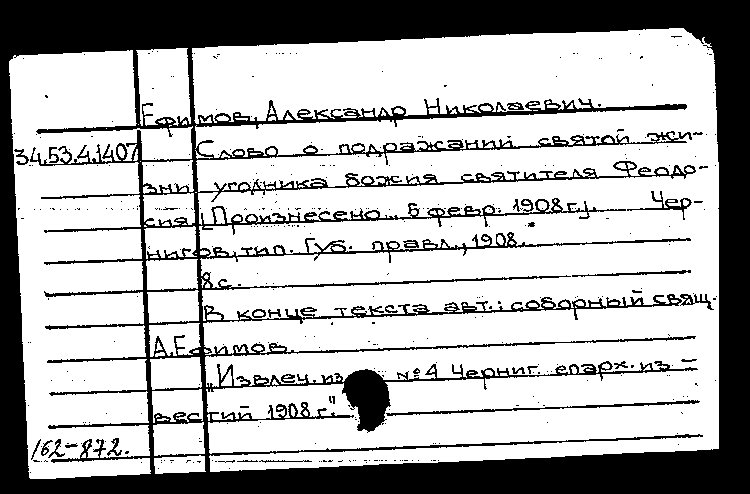 Ефимов, Александр Николаевич.
34.53.4.1407 Слово о подражании святой жи-
зни угодника божия святителя Феодо-
сия. [Произнесено... 5 февр. 1908 г.]. Чер-
нигов, тип. Губ. правл., 1908.
8 с.
В конце текста авт.: соборный свящ.
А. Ефимов.
"Извлеч. из №4 Черниг. епарх. из-
вестий 1908 г."
162-872.